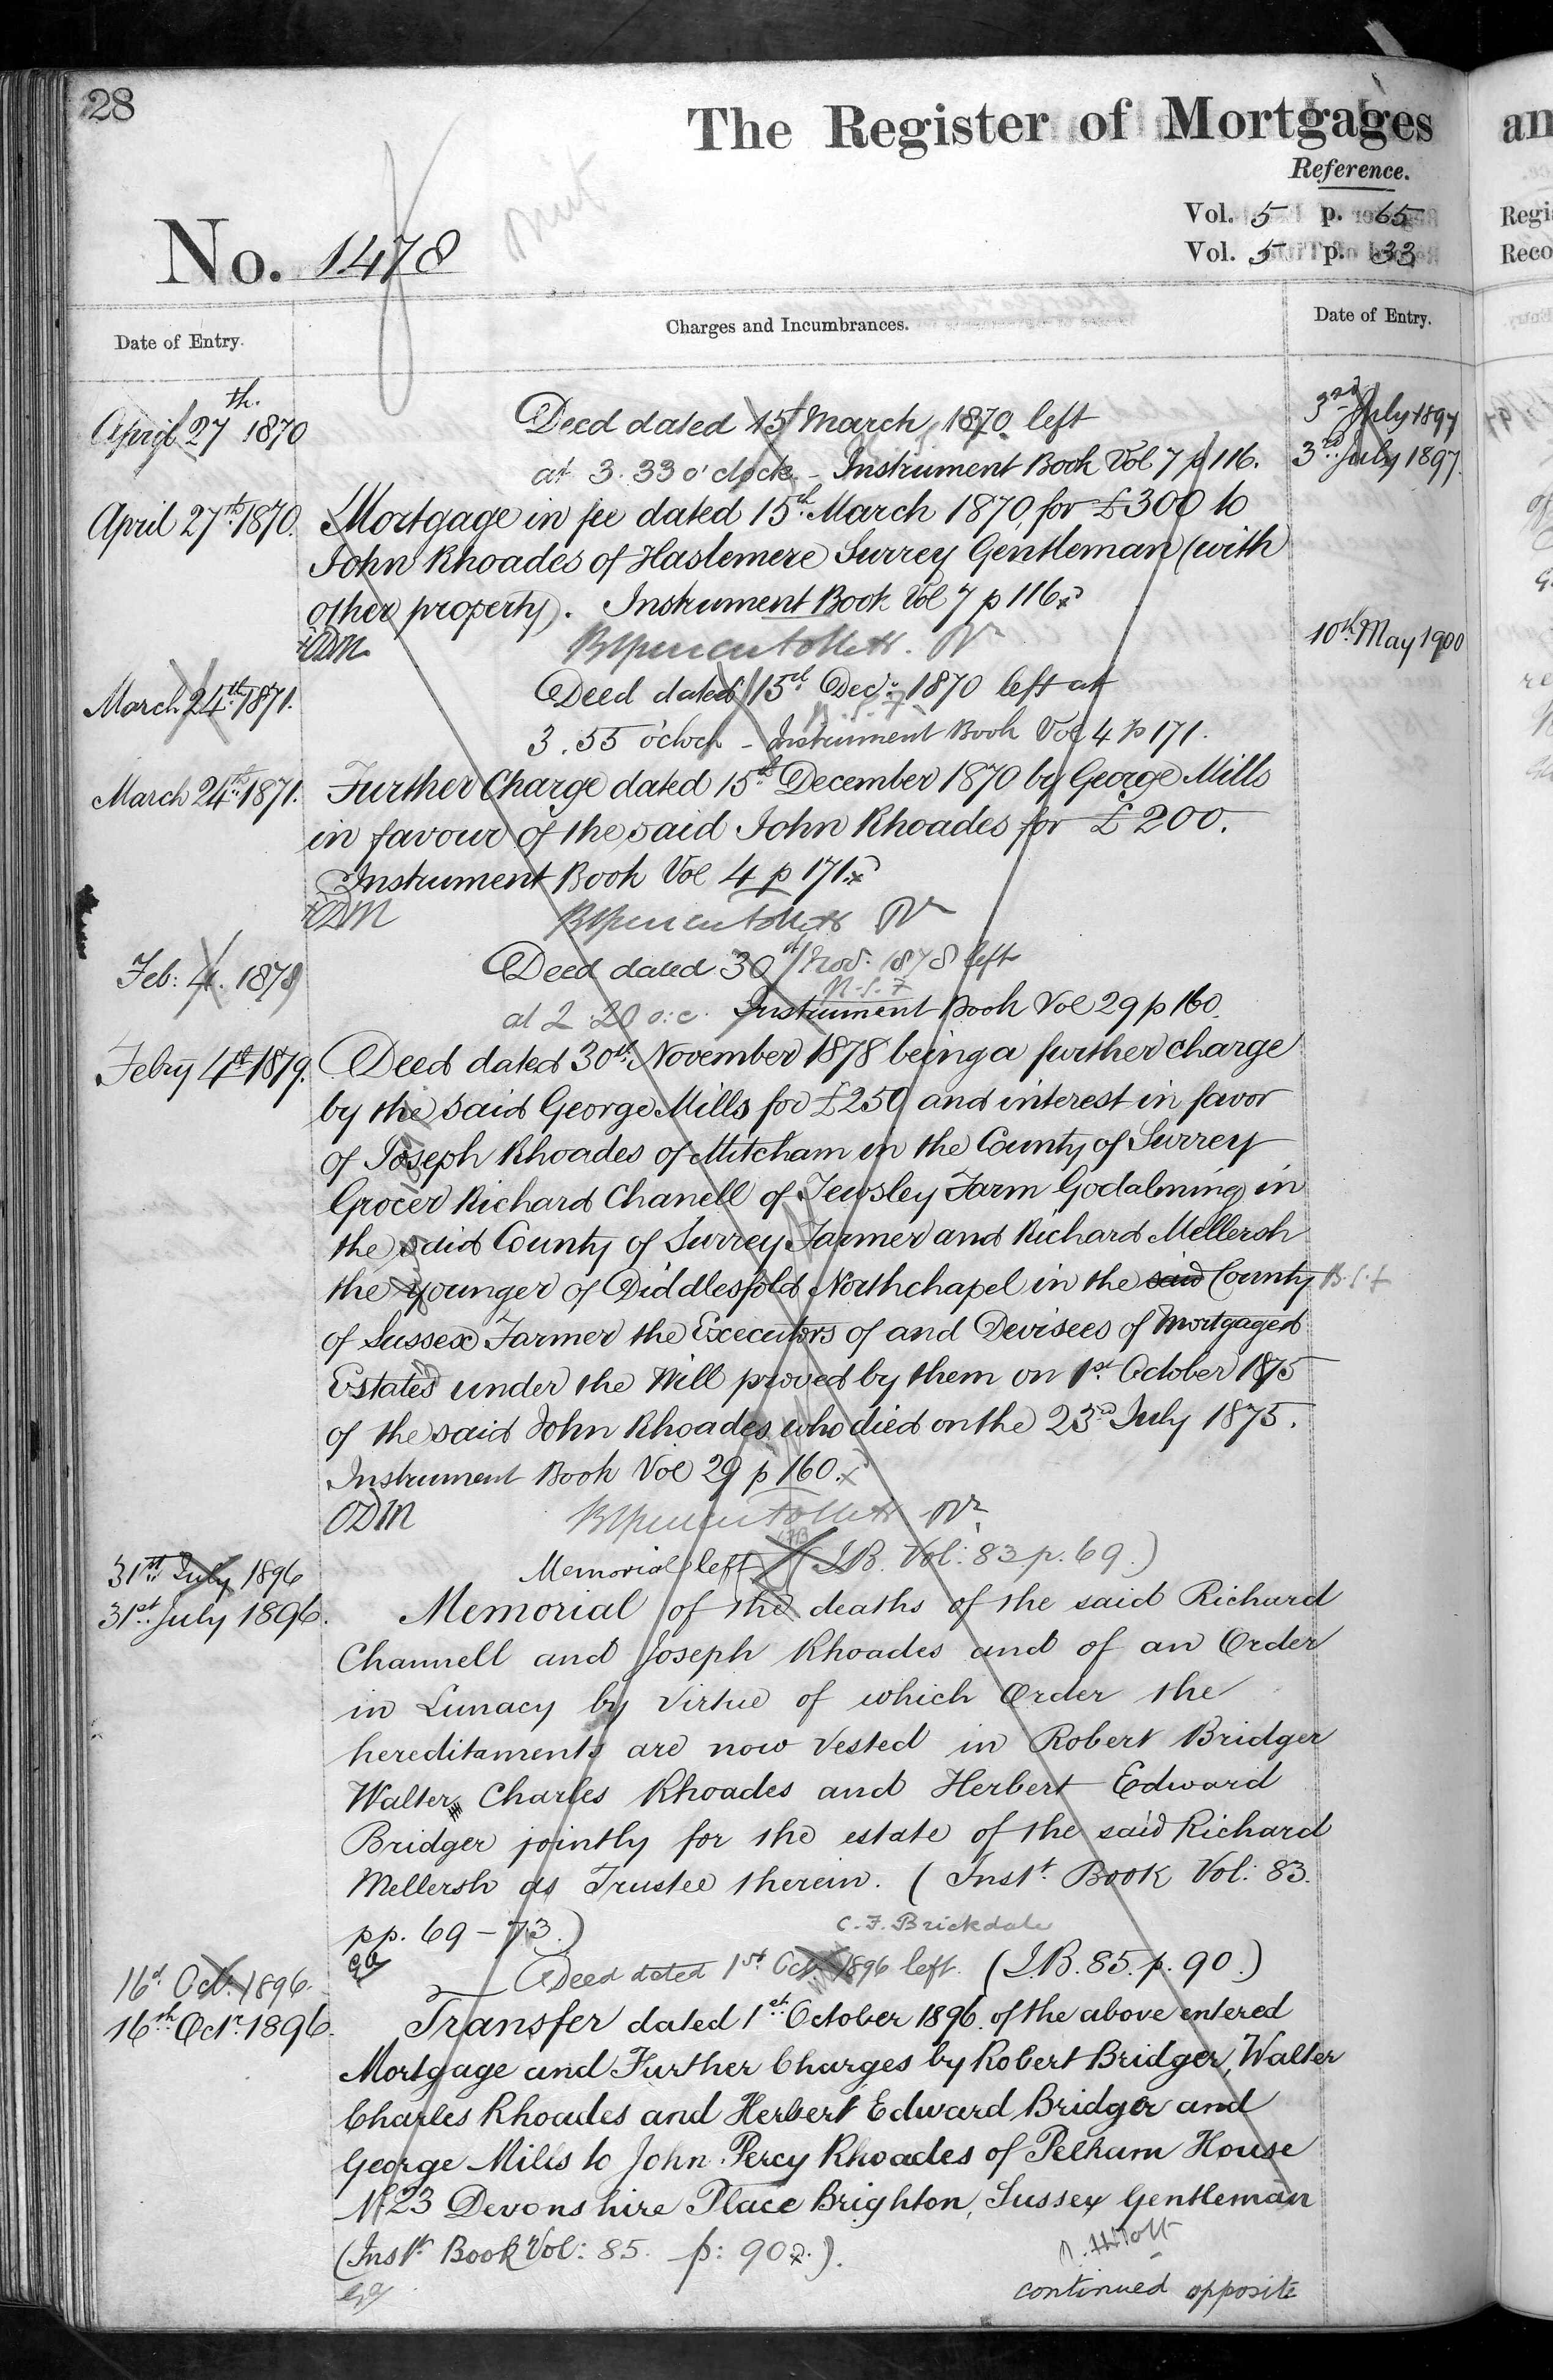 28
The Register of Mortgages
Reference.
Vol. 5 p. 65
Vol. 5 p. 33
No. 1478
Date of Entry.
Charges and Incumbrances.
Date of Entry.
April 27th 1870
Deed dated 15th March 1870 left
3rd July 1897
at 3.33 o'clock - Instrument Book Vol 7 p 116.
3rd July 1897.
April 27th 1870.
Mortgage in fee dated 15th March 1870, for £300 to
John Rhoades of Haslemere Surrey Gentleman (with
other property). Instrument Book Vol 7 p 116
ODM
10th May 1900
March 24th 1871.
Deed dated 15th Decr. 1870 left at
3.55 o'clock - Instrument Book Vol 4 p 171.
March 24th 1871.
Further Charge dated 15th December 1870 by George Mills
in favour of the said John Rhoades for £200.
Instrument Book Vol 4 p 171.
ODM
Feb: 4. 1879
Deed dated 30th Nov: 1878 left
at 2.20 o.c. Instrument Book Vol 29 p 160.
Febry 4th 1879.
Deed dated 30th November 1878 being a further charge
by the said George Mills for £250 and interest in favor
of Joseph Rhoades of Mitcham in the County of Surrey
Grocer Richard Chanell of Tewsley Farm Godalming in
the said County of Surrey Farmer and Richard Mellersh
the younger of Diddlesfold Northchapel in the said County
of Sussex Farmer the Executors of and Devisees of Mortgaged
Estates under the Will proved by them on 1st October 1875
of the said John Rhoades who died on the 23rd July 1875.
Instrument Book Vol 29 p 160.
ODM
31st July 1896
Memorial left (I.B. Vol: 83 p. 69.)
31st July 1896.
Memorial of the deaths of the said Richard
Channell and Joseph Rhoades and of an Order
in Lunacy by virtue of which Order the
hereditaments are now vested in Robert Bridger
Walter Charles Rhoades and Herbert Edward
Bridger jointly for the estate of the said Richard
Mellersh as Trustee therein. (Instt. Book Vol: 83.
pp. 69-73.)
C. F. Brickdale
16th Oct. 1896.
Deed dated 1st Oct. 1896 left. (I.B. 85. p. 90.)
16th Octr. 1896.
Transfer dated 1st October 1896. of the above entered
Mortgage and Further Charges by Robert Bridger, Walter
Charles Rhoades and Herbert Edward Bridger and
George Mills to John Percy Rhoades of Pelham House
No 23 Devonshire Place Brighton, Sussex Gentleman
(Instt. Book Vol: 85. p: 90.).
continued opposite
an
Regi
Reco